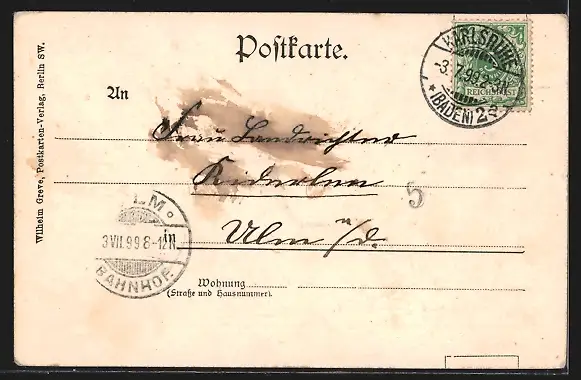 Postkarte.
KARLSRUHE
-3.7.99.
(BADEN) 2
REICHSPOST
An
Frau Landrichter
5
in Ulm a/d.
ULM
3 VII.99 8-12N
BAHNHOF.
Wohnung
(Straße und Hausnummer).
Wilhelm Greve, Postkarten-Verlag, Berlin SW.